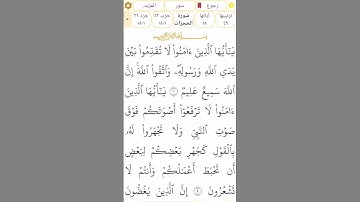 رجوع سور المزيد
ترتيبها آياتها سورة جزء ٥٢ جزء ٢٦
٤٩ ١٨ الحجرات ١-١٨ ١-١٨
يَـٰٓأَيُّهَا ٱلَّذِينَ ءَامَنُوا۟ لَا تُقَدِّمُوا۟ بَيْنَ
يَدَىِ ٱللَّهِ وَرَسُولِهِۦ ۖ وَٱتَّقُوا۟ ٱللَّهَ ۚ إِنَّ
ٱللَّهَ سَمِيعٌ عَلِيمٌ ١ يَـٰٓأَيُّهَا ٱلَّذِينَ
ءَامَنُوا۟ لَا تَرْفَعُوٓا۟ أَصْوَٰتَكُمْ فَوْقَ
صَوْتِ ٱلنَّبِىِّ وَلَا تَجْهَرُوا۟ لَهُۥ
بِٱلْقَوْلِ كَجَهْرِ بَعْضِكُمْ لِبَعْضٍ
أَن تَحْبَطَ أَعْمَـٰلُكُمْ وَأَنتُمْ لَا
تَشْعُرُونَ ٢ إِنَّ ٱلَّذِينَ يَغُضُّونَ